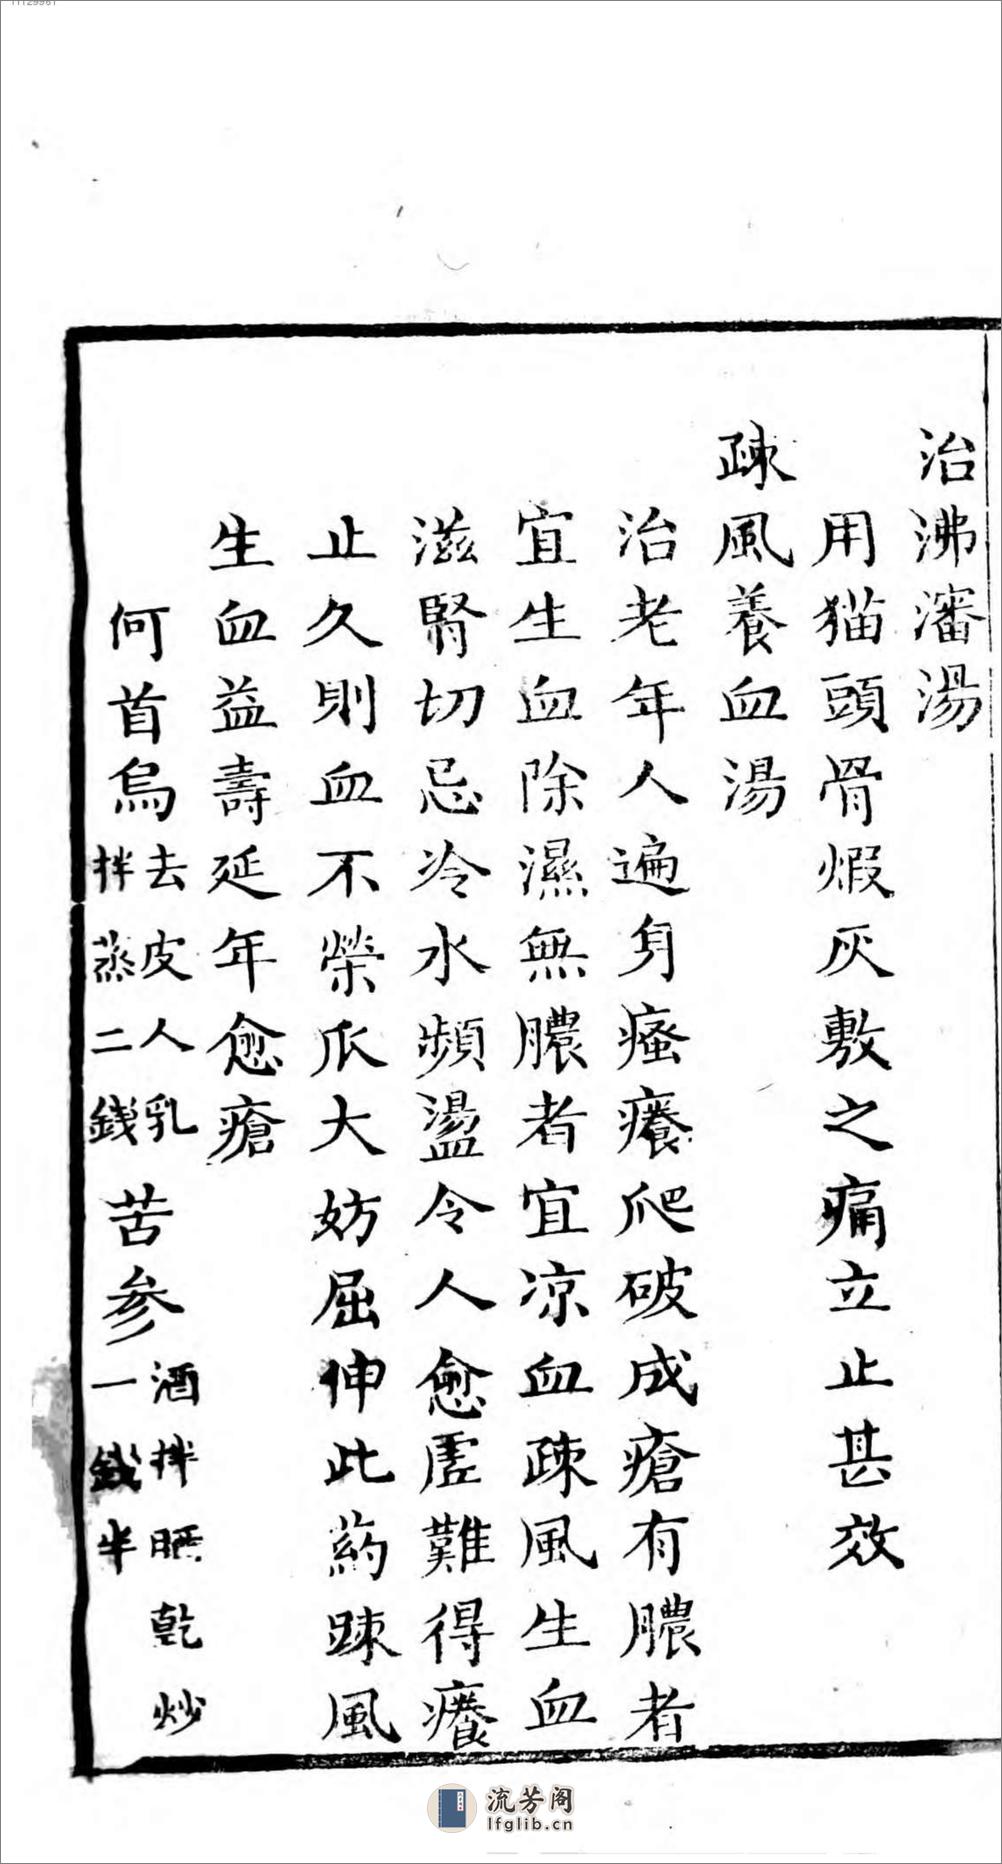 治沸瀋湯
用猫頭骨煆灰敷之痛立止甚效
疎風養血湯
治老年人遍身瘙癢爬破成瘡有膿者
宜生血除濕無膿者宜凉血疎風生血
滋腎切忌冷水頻盪令人愈虚難得癢
止久則血不榮爪大妨屈伸此葯踈風
生血益壽延年愈瘡
何首烏去皮人乳拌蒸二錢苦参酒拌晒乾炒一錢半
流芳阁
lfglib.cn